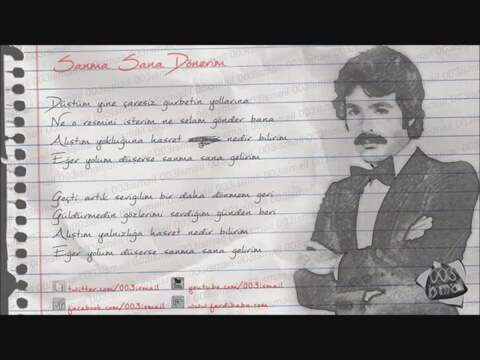 Sanma Sana Dönerim
Düştüm yine çaresiz gurbetin yollarına
Ne o resmini isterim ne selam gönder bana
Alıştım yokluğuna hasret nedir bilirim
Eğer yolum düşerse sanma sana gelirim
Geçti artık sevgilim bir daha dönmem geri
Güldürmedin gözlerimi sevdiğim günden beri
Alıştım yalnızlığa hasret nedir bilirim
Eğer yolum düşerse sanma sana gelirim
twitter.com/003ismail youtube.com/003ismail
facebook.com/003ismail www.ferdibaba.com